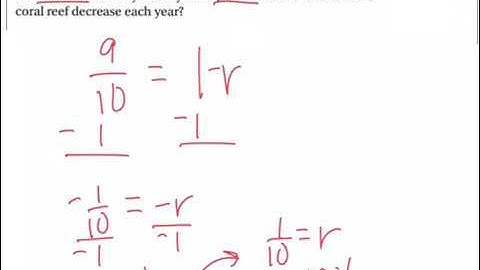 coral reef decrease each year?
9/10 = 1-r
-1 -1
-1/10 = -r
-1 -1
1/10 = r